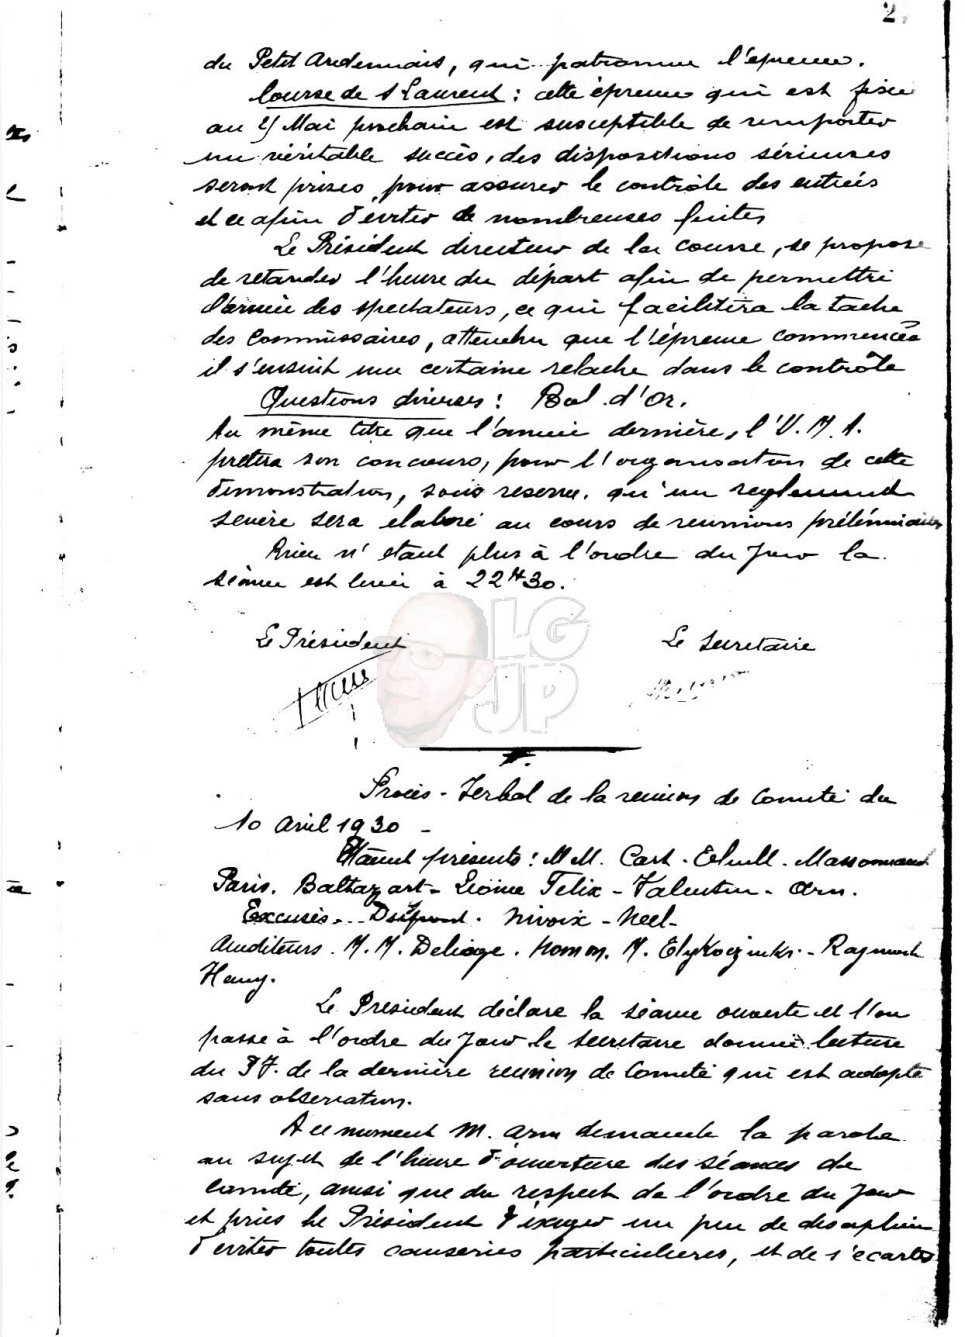 2
du Petit Ardennais, qui patronne l'épreuve.
Course de St Laurent : cette épreuve qui est fixée
au Mai prochain est susceptible de remporter
un véritable succès, des dispositions sérieuses
seront prises pour assurer le contrôle des entrées
et ce afin d'éviter de nombreuses fuites
Le Président directeur de la course, se propose
de retarder l'heure du départ afin de permettre
l'arrivée des spectateurs, ce qui facilitera la tache
des Commissaires, attendu que l'épreuve commencée
il s'ensuit une certaine relache dans le contrôle
Questions diverses : Bol d'Or.
Au même titre que l'année dernière, l'U.M.A.
prêtera son concours, pour l'organisation de cette
démonstration, sous reserve, qu'un reglement
sevère sera élaboré au cours de reunions préléminaires
Rien n'étant plus à l'ordre du Jour la
séance est levée à 22H30.
Le Président
Le Secretaire
LG
JP
Procès-Verbal de la reunion de Comité du
10 Avril 1930 -
Etaient présents : M M. Cart - - Massonnaud
Paris. Balthazart - Félix - Valentin - Arn.
Excusés - - Nivoix - Neel -
Auditeurs. M. M. Deliage. M. - Raymond
Henry.
Le President déclare la séance ouverte et l'on
passe à l'ordre du Jour le secretaire donne lecture
du P V. de la dernière reunion de Comité qui est adopté
sans observation.
A ce moment M. Arn demande la parole
au sujet de l'heure d'ouverture des séances de
Comité, ainsi que du respect de l'ordre du Jour
et pries le Président d'éxiger un peu de
d'éviter toutes causeries particulieres, et de s'ecarter